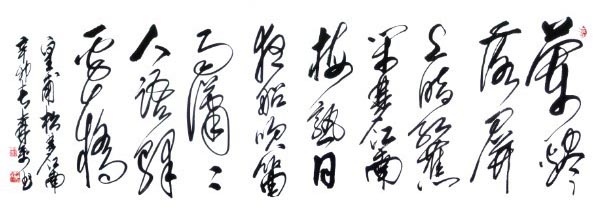 蘭燼
落屏
上暗紅蕉
閒夢江南
梅熟日
夜船吹笛
雨瀟々
人語驛
邊橋
皇甫松夢江南
辛卯